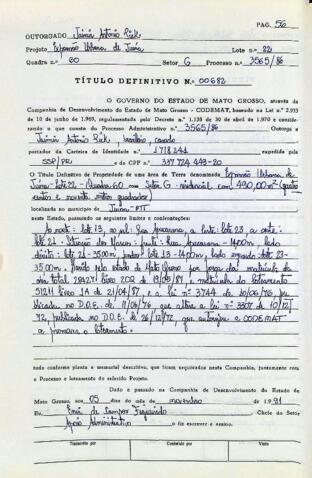 PAG. 56
OUTORGADO Jaimir Antonio Rick
Projeto Expansão Urbana de Juína Lote n.º 22
Quadra n.º 60 Setor G Processo n.º 3565/86
TÍTULO DEFINITIVO N.º 00682
O GOVERNO DO ESTADO DE MATO GROSSO, através da
Companhia de Desenvolvimento do Estado de Mato Grosso - CODEMAT, baseado na Lei n.º 2.933
de 10 de junho de 1969, regulamentada pelo Decreto n.º 1.138 de 30 de abril de 1970 e conside-
rando o que consta do Processo Administrativo n.º 3565/86 Outorga a
Jaimir Antonio Rick, brasileiro, casado
portador da Carteira de Identidade n.º 1718241 expedida pela
SSP/PR do CPF n.º 337 724 449-20
O Título Definitivo de Propriedade de uma área de Terra denominada Expansão Urbana de
Juína - Lote 22 - Quadra 60 - Setor G - residencial, com 490,00 m² (quatro
centos e noventa metros quadrados)
localizada no município de Juína-MT
neste Estado, passando os seguintes limites e confrontações:
Ao norte: lote 13, ao sul: Rua, a leste: lote 23, a oeste:
lote 21 - frente: Rua - 14,00m, lado
direito: lote 21 - 35,00m, fundos: lote 13 - 14,00m, lado esquerdo: lote 23 -
35,00m. pelo Estado de Mato Grosso por força da matrícula da
área total 28427 livro 202 de 19/ /87, e matrícula do loteamento
51211 livro 2A de 21/04/87, e a lei n.º 3744 de 10/06/76, pu-
blicada no D.O.E. de 11/06/76 que altera a lei n.º 3307 de 10/12/
72, publicada no D.O.E. de 26/12/72, que autorizou a CODEMAT
a promover o loteamento.
tudo conforme planta e memorial descritivo, que ficam arquivados nesta Companhia, juntamente com
o Processo e loteamento do referido Projeto.
Dado e passado na Companhia de Desenvolvimento do Estado de
Mato Grosso, aos 05 dias do mês de novembro de 1.991
Eu, de Campos Figueiredo Chefe do Setor
Apoio Administrativo o fiz escrever e assino.
Transcrito por
Conferido por
Visto